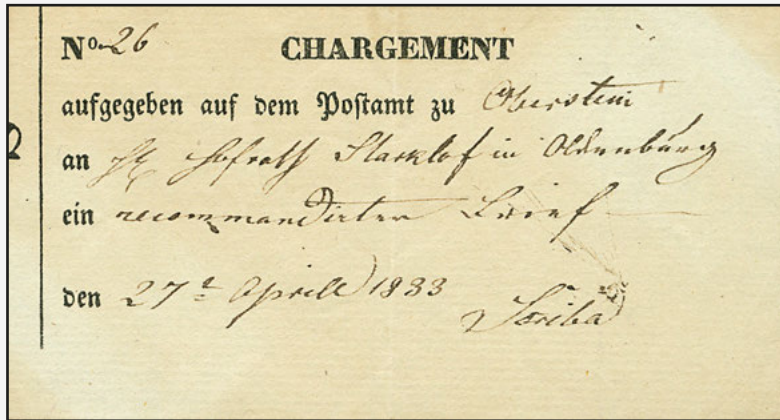 No 26 CHARGEMENT
aufgegeben auf dem Postamt zu Oberstein
an H. Hofrath Starklof in Oldenburg
ein recommandirter Brief
den 27t Aprill 1833
Scriba